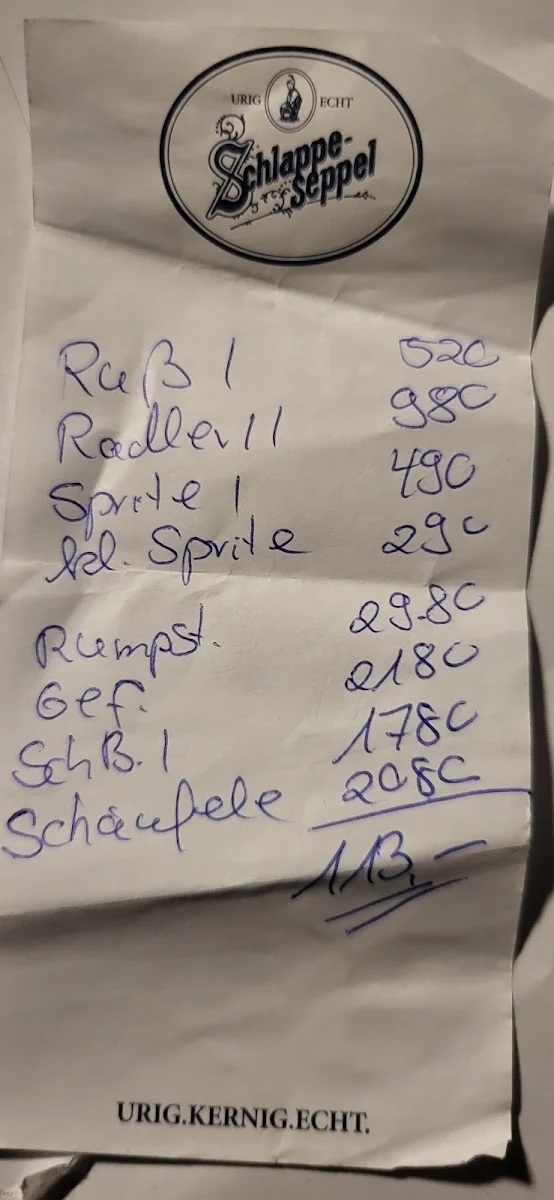 URIG ECHT
Schlappe-
Seppel
Ruß I 520
Radler II 980
Sprite I 490
kl. Sprite 290
Rumpst. 29.80
Gef. 2180
SchB. I 1780
Schäufele 2080
113,-
URIG.KERNIG.ECHT.